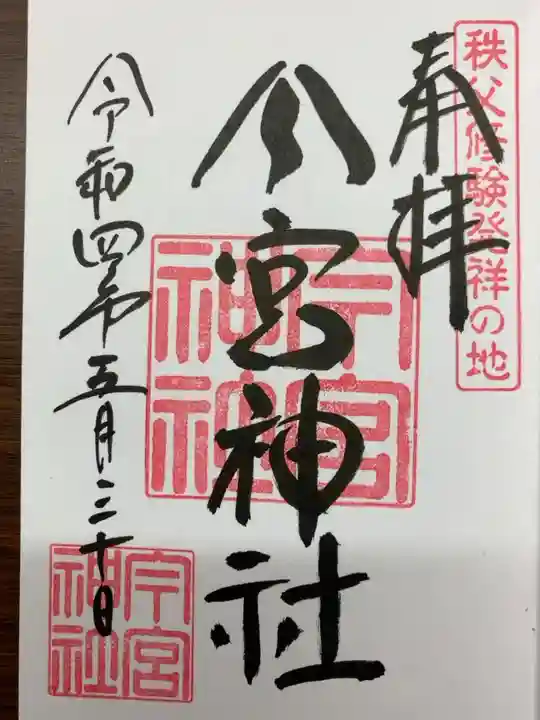 秩父修験発祥の地
奉拝
今宮神社
今宮
神社
令和四年五月三十日
今宮
神社